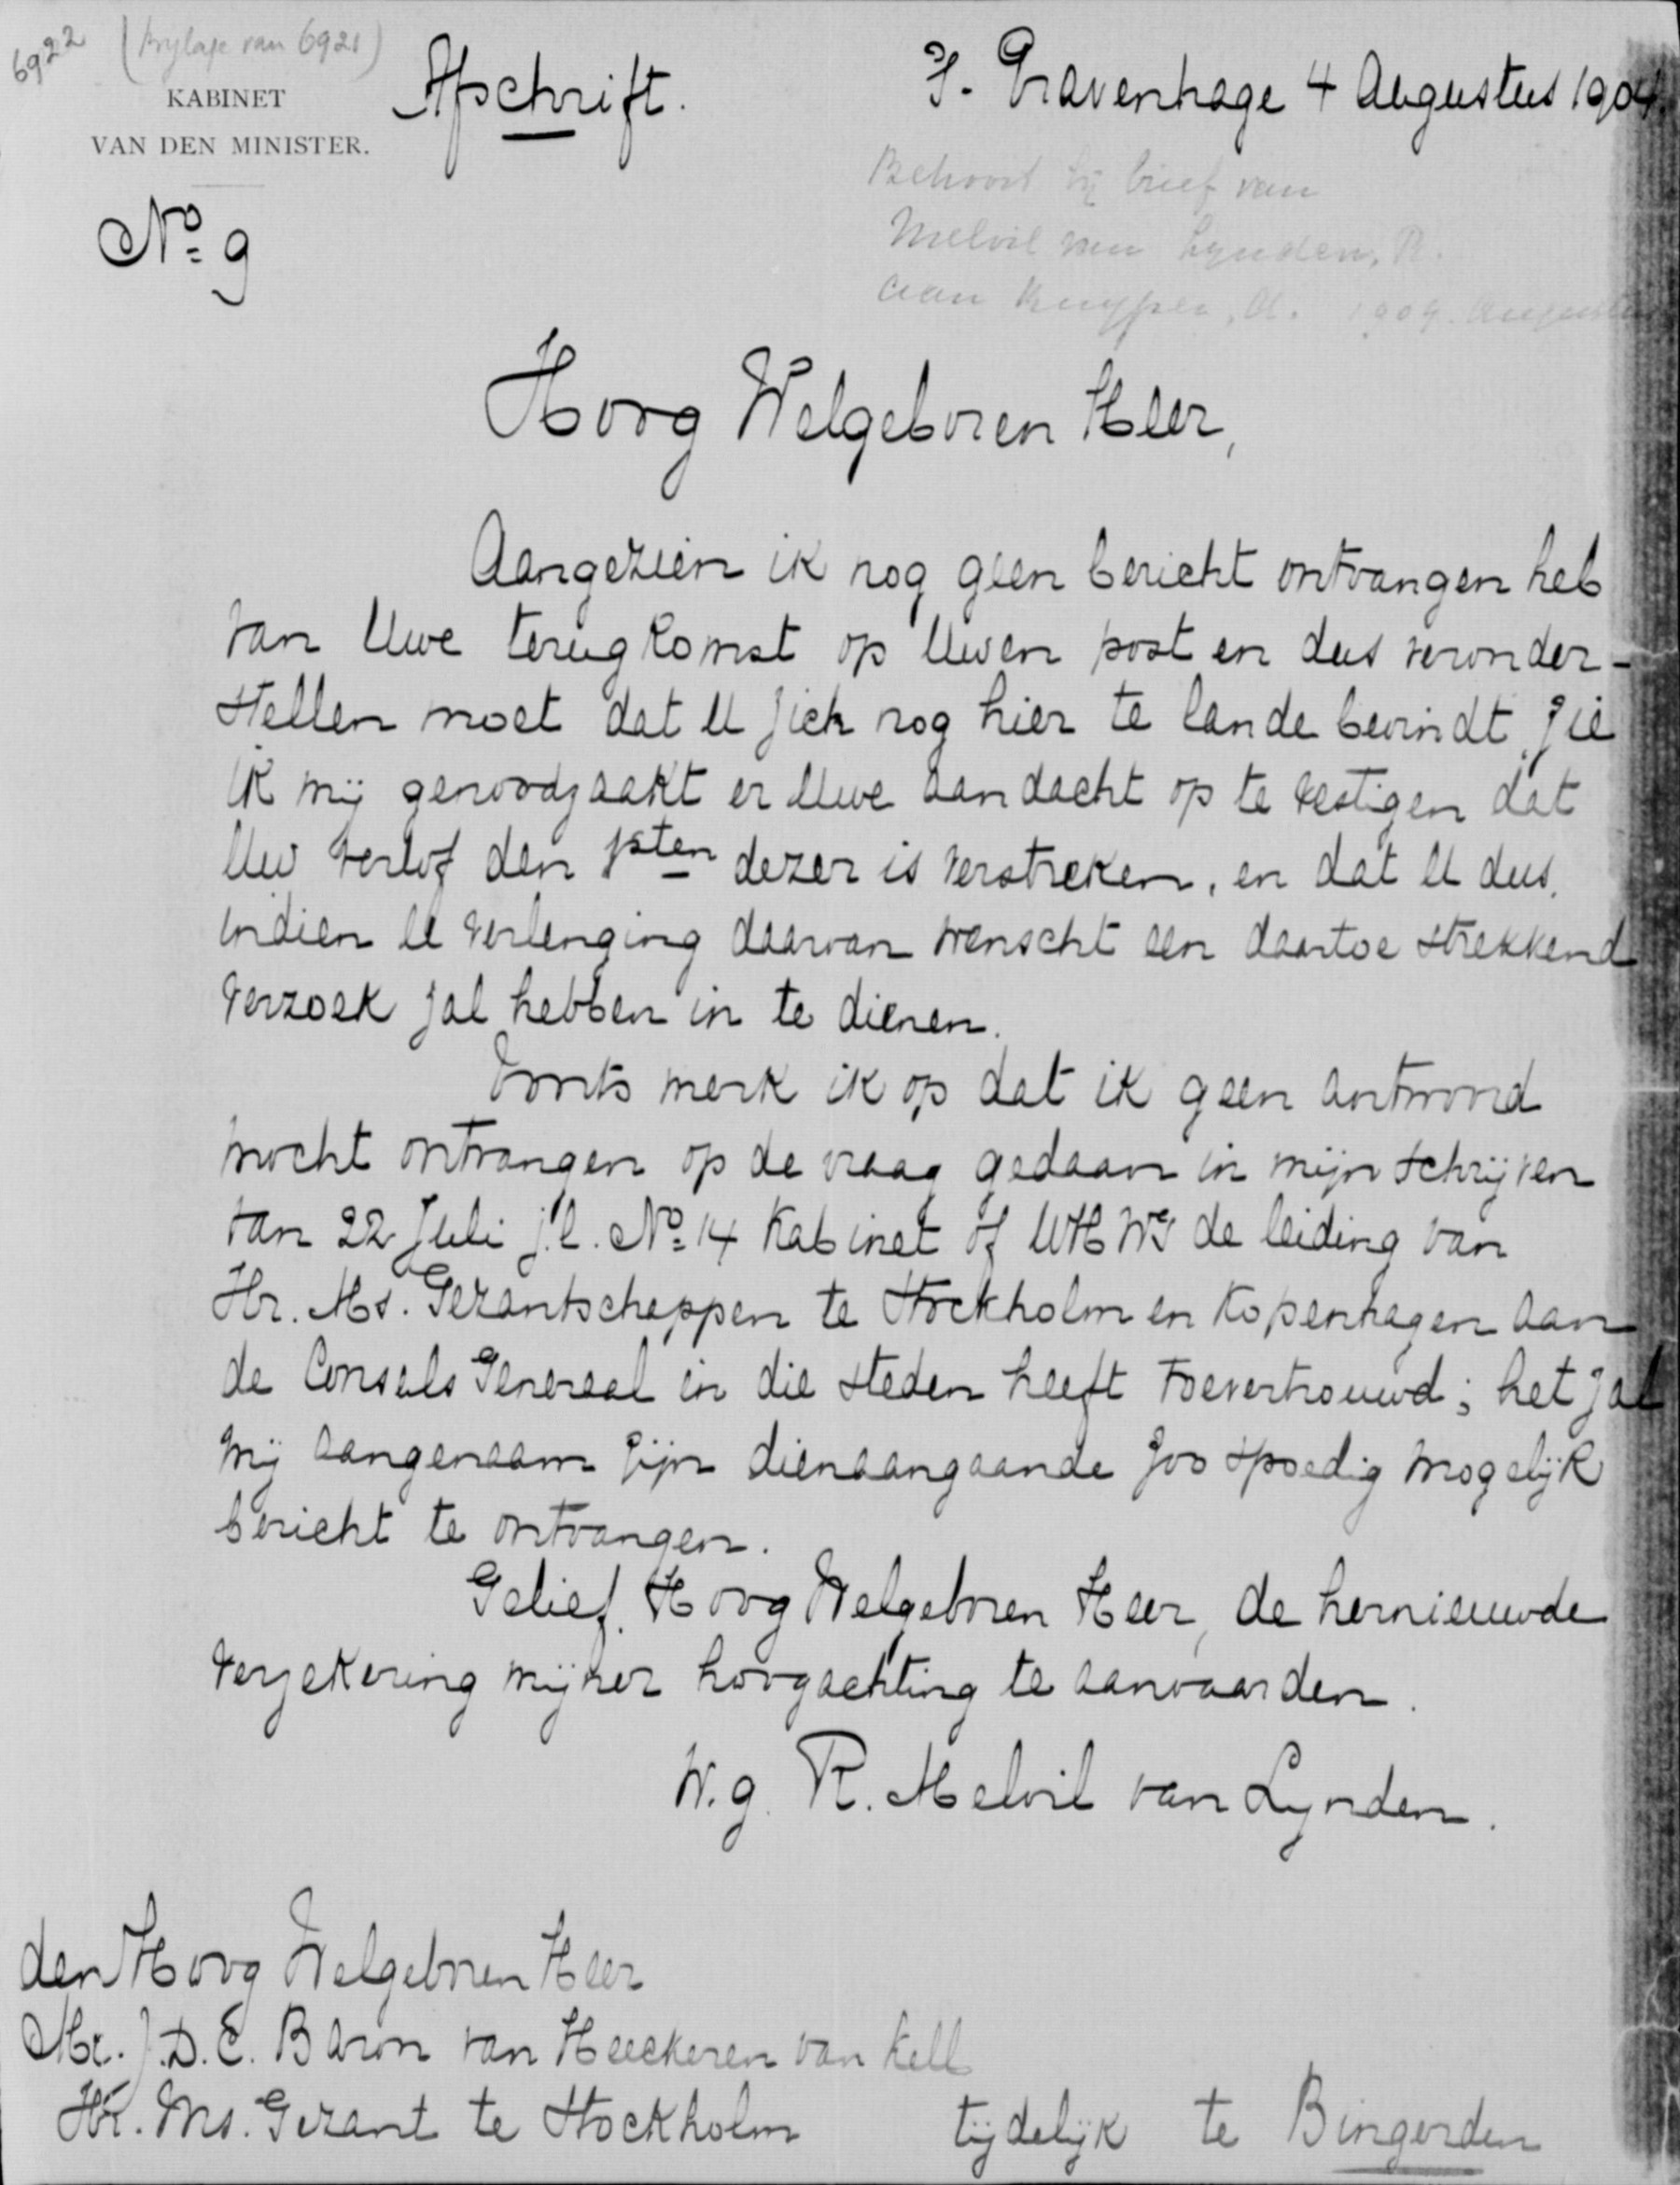 6922 (bylage van 6921)
KABINET
VAN DEN MINISTER.
Afschrift.
's-Gravenhage 4 Augustus 1904.
Nº 9
Behoort bij brief van
Melvil van Lynden, R.
aan Kuyper, A. 1904. Augustus
Hoog Welgeboren Heer,
Aangezien ik nog geen bericht ontvangen heb
van Uwe terugkomst op Uwen post en dus veronder-
stellen moet dat U zich nog hier te lande bevindt, zie
ik mij genoodzaakt er Uwe aandacht op te vestigen dat
Uw verlof den 1sten dezer is verstreken, en dat U dus,
indien U verlenging daarvan wenscht een daartoe strekkend
verzoek zal hebben in te dienen.
Voorts merk ik op dat ik geen antwoord
mocht ontvangen op de vraag gedaan in mijn schrijven
van 22 Juli j.l. Nº 14 Kabinet of UHWG de leiding van
Hr. Ms. Gezantschappen te Stockholm en Kopenhagen aan
de Consuls Generaal in die steden heeft toevertrouwd; het zal
mij aangenaam zijn dienaangaande zoo spoedig mogelijk
bericht te ontvangen.
Gelief, Hoog Welgeboren Heer, de hernieuwde
verzekering mijner hoogachting te aanvaarden.
W.g. R. Melvil van Lynden.
den Hoog Welgeboren Heer
Mr. J.D.C. Baron van Heeckeren van Kell
Hr. Ms. Gezant te Stockholm tijdelijk te Bingerden